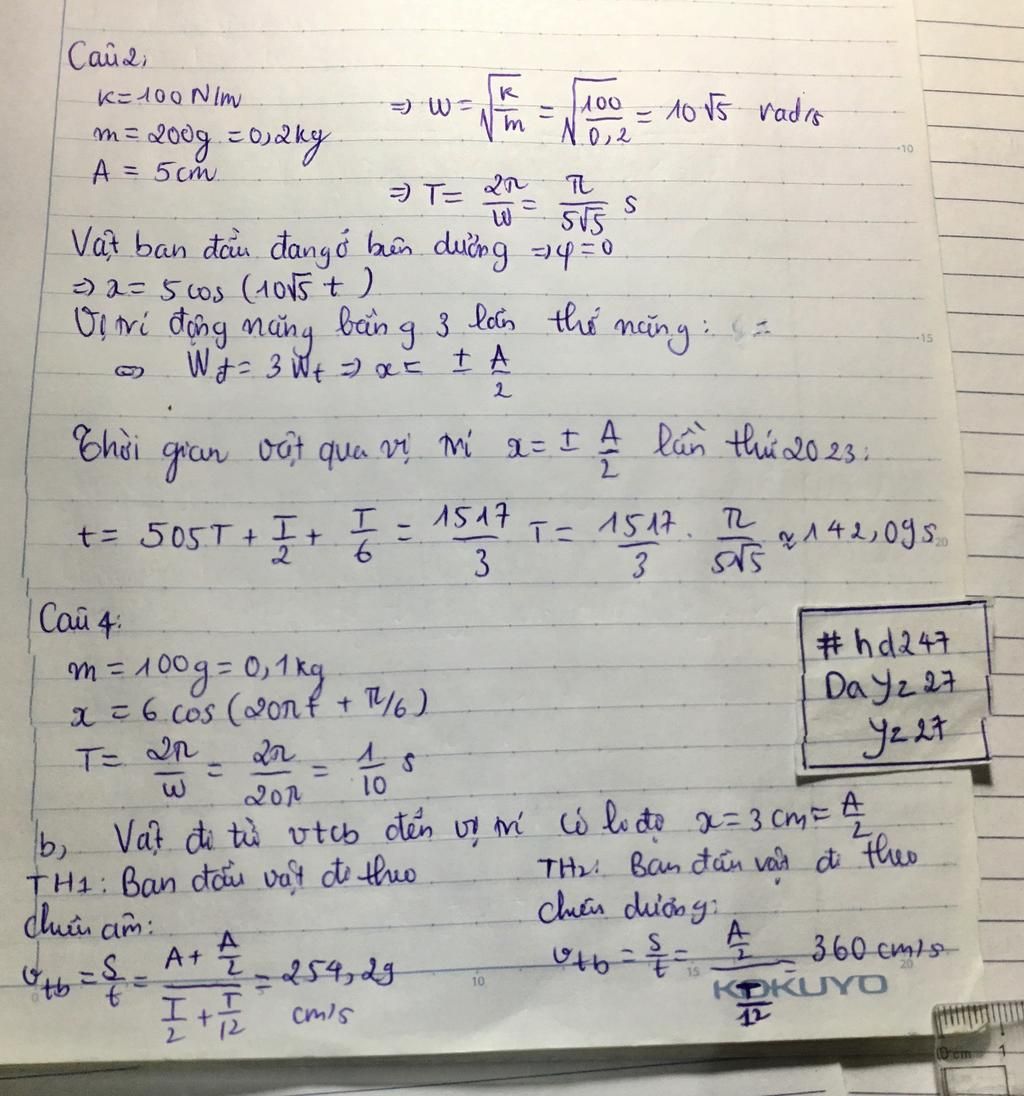 Câu 2,
K = 100 N/m
m = 200g = 0,2kg
A = 5cm
=> W = √(K/m) = √(100/0,2) = 10√5 rad/s
=> T = 2π/W = π/(5√5) s
Vật ban đầu đang ở biên dương => φ = 0
=> x = 5 cos (10√5 t)
Vị trí động năng bằng 3 lần thế năng:
<=> Wđ = 3 Wt => x = ± A/2
Thời gian vật qua vị trí x = ± A/2 lần thứ 2023:
t = 505T + T/2 + T/6 = 1517/3 T = 1517/3 . π/(5√5) ≈ 142,09s
Câu 4:
m = 100g = 0,1kg
x = 6 cos (20πt + π/6)
T = 2π/W = 2π/20π = 1/10 s
#hd247
DaYz27
Yz27
b, Vật đi từ vtcb đến vị trí có li độ x = 3 cm = A/2
TH1: Ban đầu vật đi theo
chiều âm:
vtb = S/t = (A + A/2)/(T/2 + T/12) = 254,29
cm/s
TH2: Ban đầu vật đi theo
chiều dương:
vtb = S/t = (A/2)/(T/12) = 360 cm/s
KOKUYO
10
15
20
10
15
20
0 cm 1